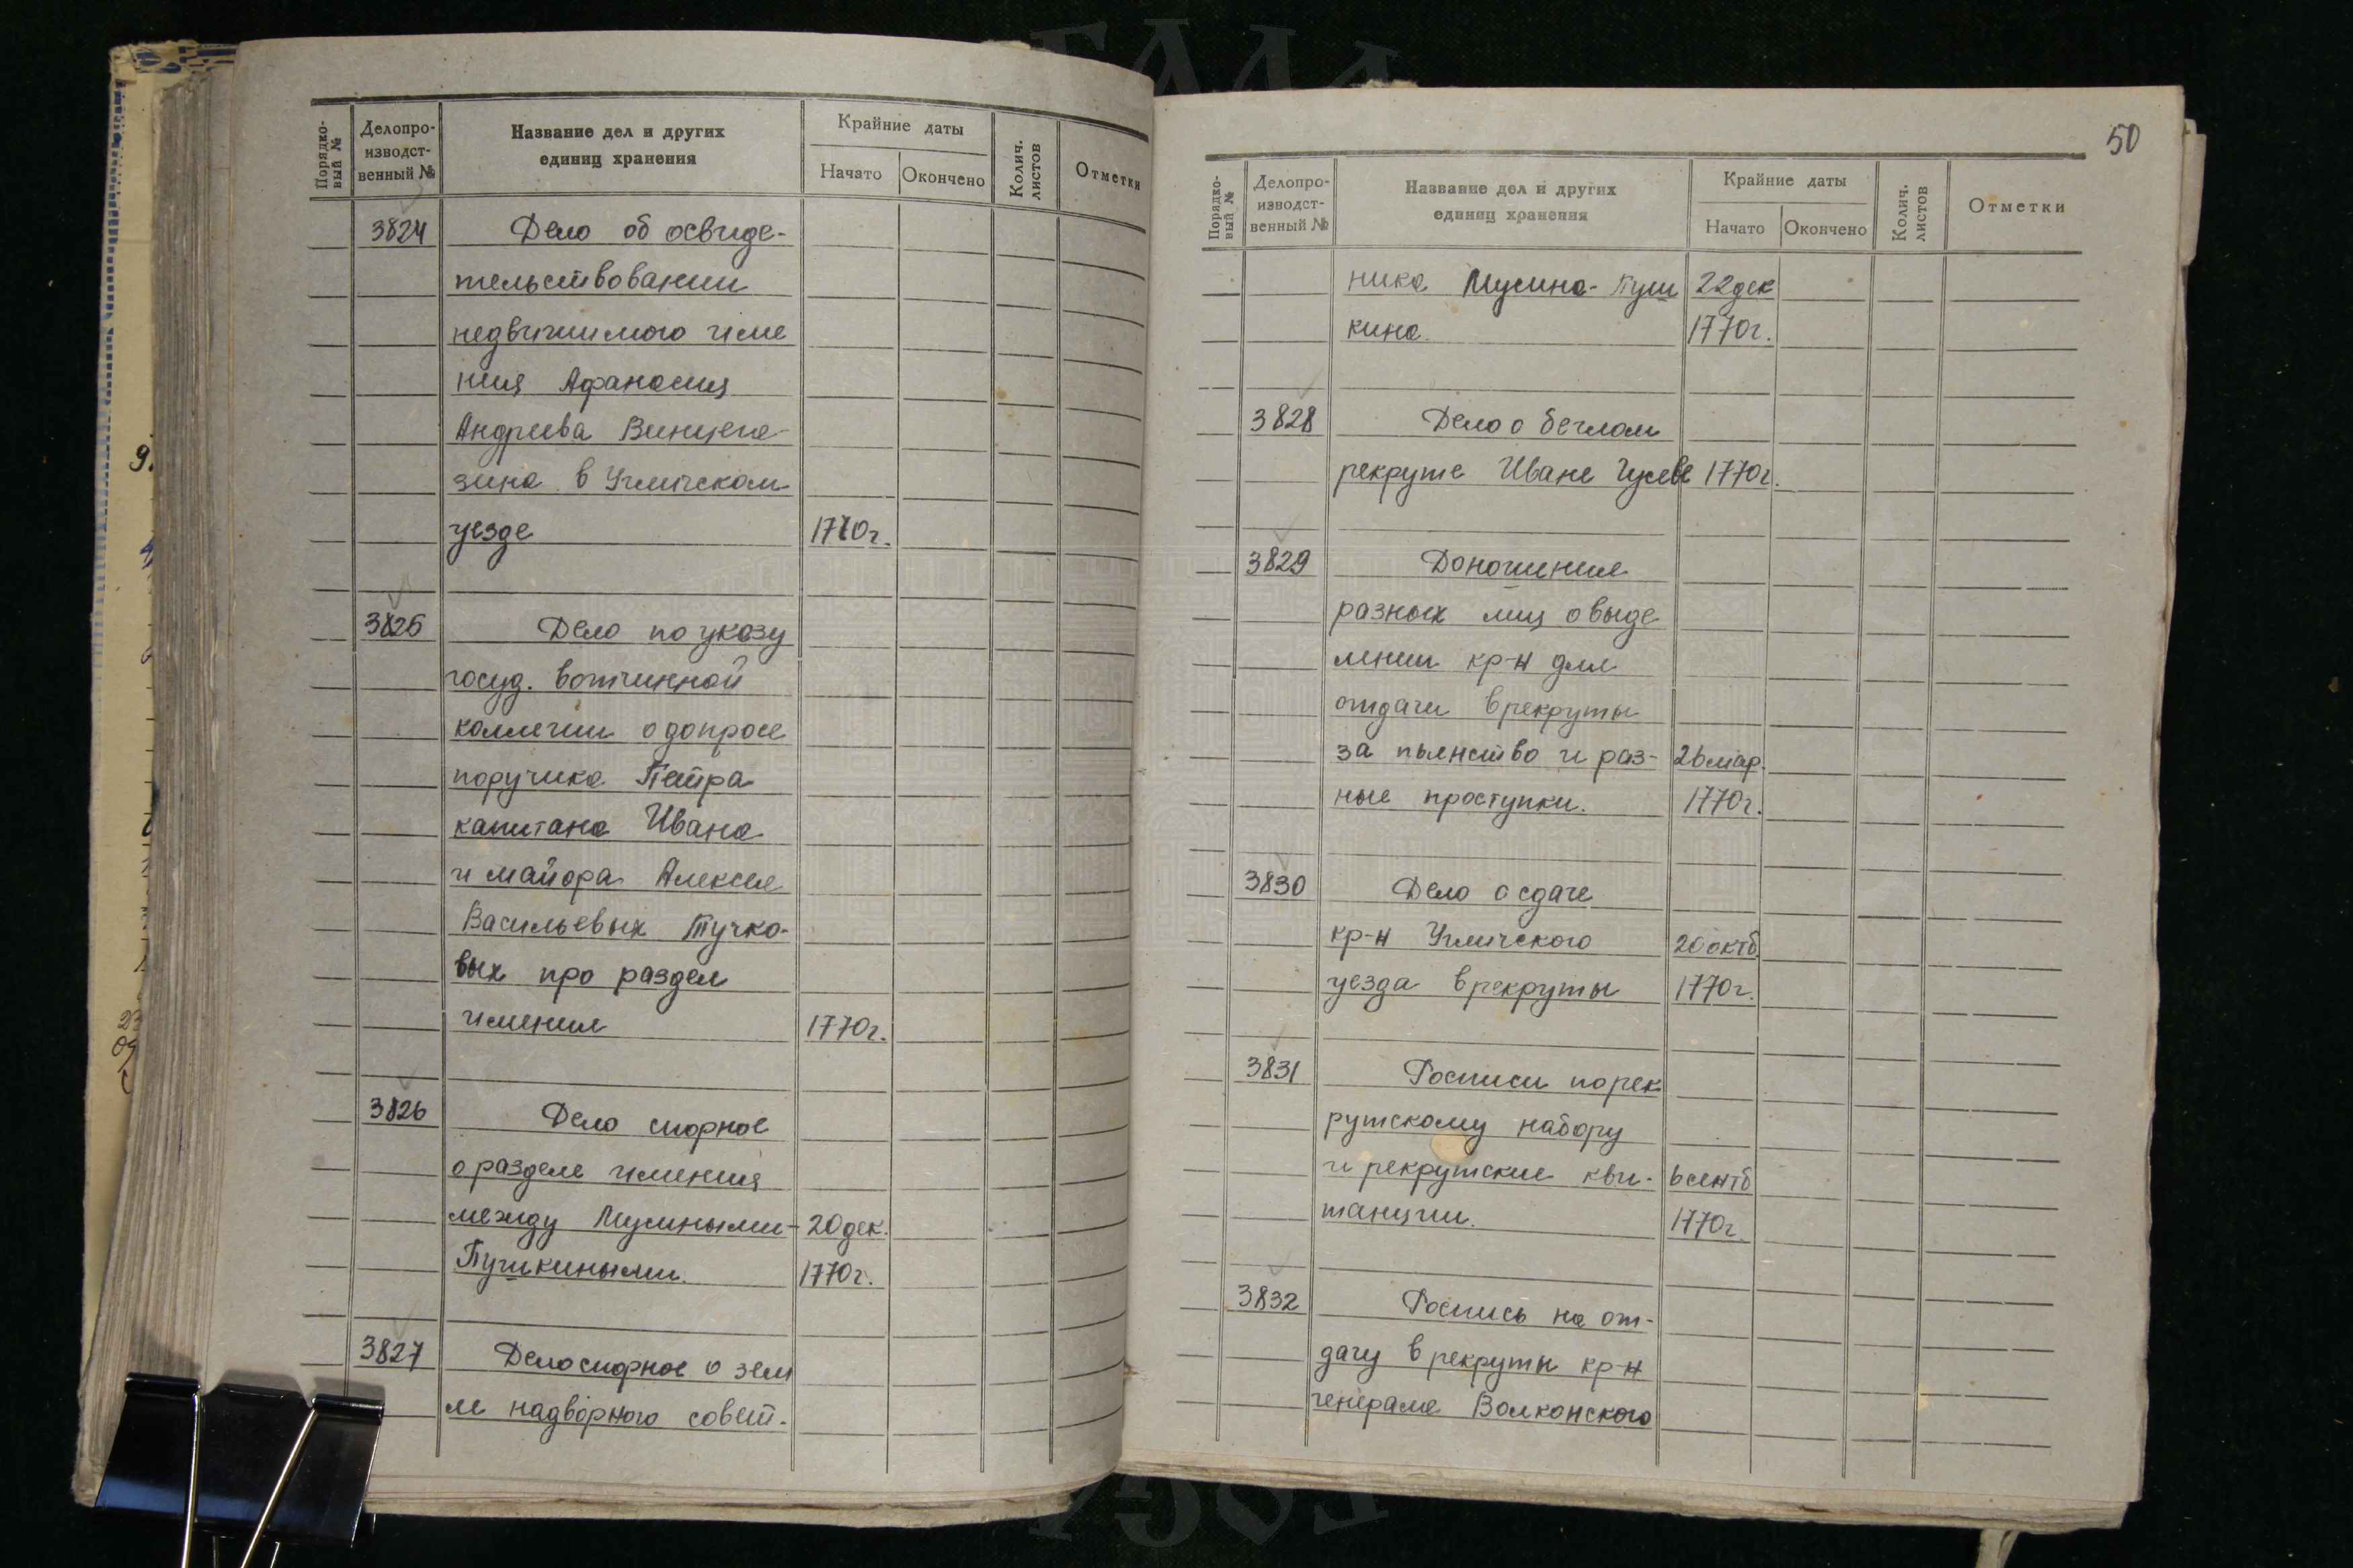 Порядко-
вый №
Делопро-
изводст-
венный №
Название дел и других
единиц хранения
Крайние даты
Начато
Окончено
Колич.
листов
Отметки
3824 Дело об освиде-
тельствовании
недвижимого име
ния Афанасия
Андреева
в Угличском
уезде 1770г.
3825 Дело по указу
госуд. вотчинной
коллегии о допросе
поручика Петра
капитана Ивана
и майора Алексея
Васильевых Тучко-
вых про раздел
имения 1770г.
3826 Дело спорное
о разделе имения
между Мусиными- 20 дек.
Пушкиными. 1770г.
3827 Дело спорное о зем
ле надворного совет-
50
Порядко-
вый №
Делопро-
изводст-
венный №
Название дел и других
единиц хранения
Крайние даты
Начато
Окончено
Колич.
листов
Отметки
ника Мусина-Пуш 22 дек
кина. 1770г.
3828 Дело о беглом
рекруте Иване Гусеве 1770г.
3829 Доношения
разных лиц о выде
лении кр-н для
отдачи в рекруты
за пьянство и раз- 26 мар.
ные проступки. 1770г.
3830 Дело о сдаче
кр-н Угличского 20 октб.
уезда в рекруты 1770г.
3831 Росписи по рек
рутскому набору
и рекрутские кви- 6 сентб
танции. 1770г.
3832 Роспись на от-
дачу в рекруты кр-н
генерала Волконского